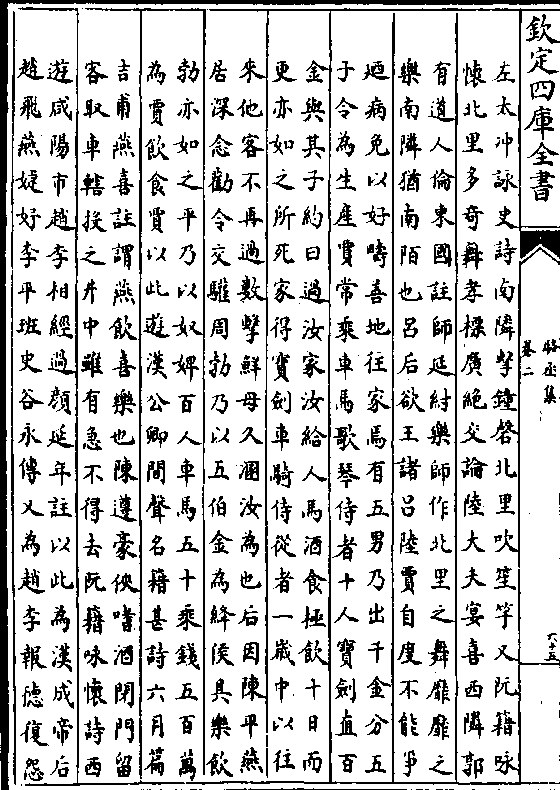 欽定四庫全書
駱丞集
卷二
六十五
左太沖詠史詩南隣擊鐘磬北里吹笙竽又阮籍咏
懷北里多奇舞孝標廣絕交論陸大夫宴喜西隣郭
有道人倫東國註師延紂樂師作北里之舞靡靡之
樂南隣猶南陌也呂后欲王諸呂陸賈自度不能爭
廼病免以好疇善地往家焉有五男乃出千金分五
子令為生產賈常乘車馬歌琴侍者十人寶劍直百
金與其子約曰過汝家汝給人馬酒食極飲十日而
更亦如之所死家得寶劍車騎侍從者一歲中以往
來他客不再過數擊鮮母久溷汝為也后因陳平燕
居深念勸令交驩周勃乃以五伯金為絳侯具樂飲
勃亦如之平乃以奴婢百人車馬五十乘錢五百萬
為賈飲食賈以此遊漢公卿間聲名籍甚詩六月篇
吉甫燕喜註謂燕飲喜樂也陳遵豪俠嗜酒閉門留
客取車轄投之井中雖有急不得去阮籍咏懷詩西
遊咸陽市趙李相經過顔延年註以此為漢成帝后
趙飛燕婕妤李平班史谷永傳又為趙李報徳復怨